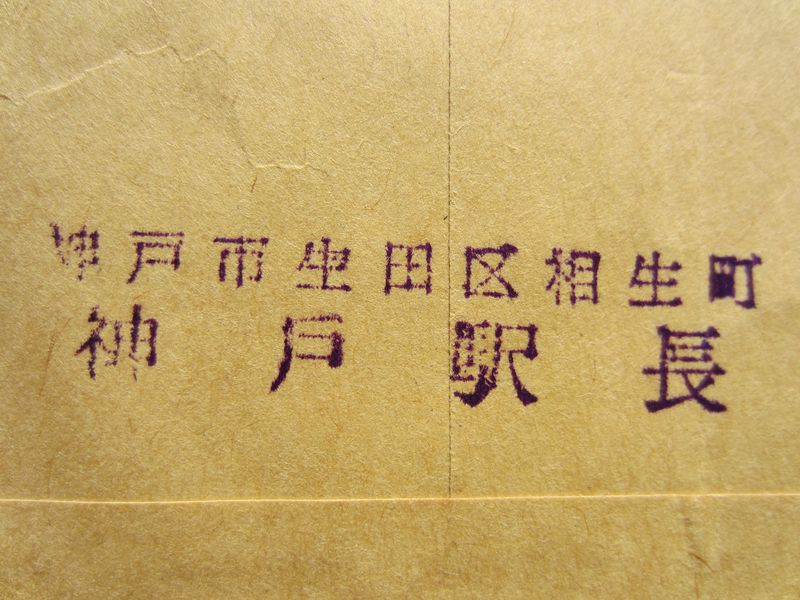 神戸市生田区相生町
神戸駅長